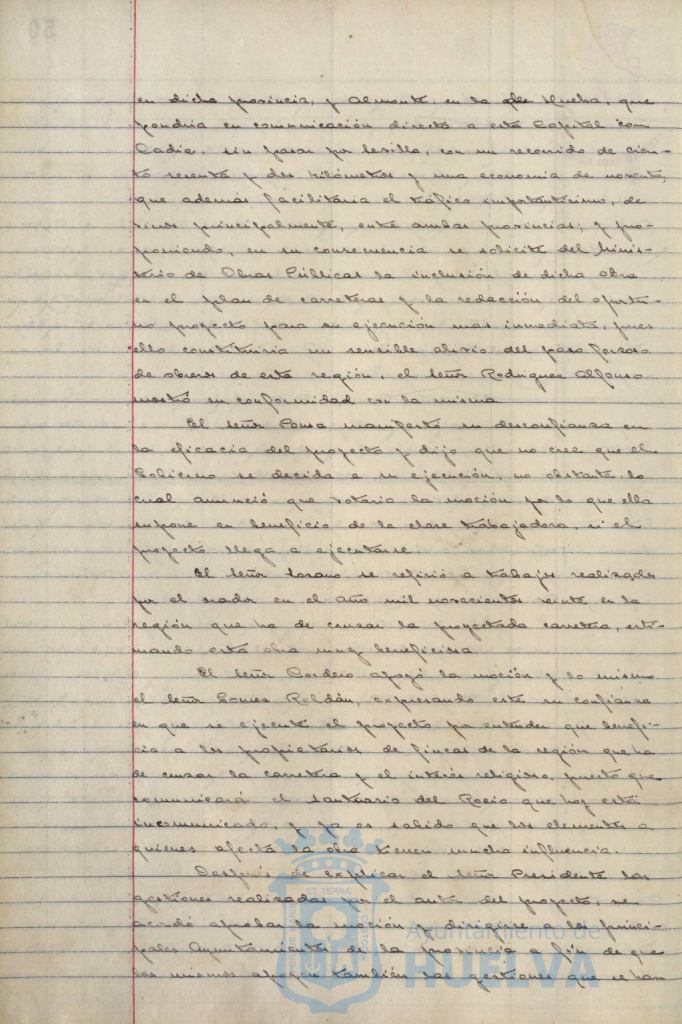 en dicha provincia, y Almonte, en la de Huelva, que
pondria en comunicación directa a esta Capital con
Cadiz, sin pasar por Sevilla, con un recorrido de cien-
to sesenta y dos kilómetros y una economia de noventa,
que además facilitaria el tráfico importantísimo, de
vinos principalmente, entre ambas provincias; y pro-
poniendo, en su consecuencia se solicite del Minis-
terio de Obras Públicas la inclusión de dicha obra
en el plan de carreteras y la redacción del oportu-
no proyecto para su ejecución mas inmediata, pues
ello constituiria un sensible alivio del paro forzoso
de obreros de esta región, el señor Rodriguez Alfonso
mostró su conformidad con la misma.
El señor Ponce manifestó su desconfianza en
la eficacia del proyecto y dijo que no cree que el
Gobierno se decida a su ejecución, no obstante lo
cual anunció que votaria la moción por lo que ella
supone en beneficio de la clase trabajadora, si el
proyecto llega a ejecutarse.
El señor Lozano se refirió a trabajos realizados
por el orador en el año mil novecientos veinte en la
región que ha de cruzar la proyectada carretera, esti-
mando esta obra muy beneficiosa.
El señor Cordero apoyó la moción y lo mismo
el señor Gomez Roldán, expresando este su confianza
en que se ejecute el proyecto por entender que benefi-
cia a los propietarios de fincas de la región que ha
de cruzar la carretera y el interés religioso, puesto que
comunicará el santuario del Rocio que hoy está
incomunicado, y ya es sabido que los elementos a
quienes afecta la obra tienen mucha influencia.
Después de explicar el señor Presidente las
gestiones realizadas por el autor del proyecto, se
acordó aprobar la moción y dirigirse a los princi-
pales Ayuntamientos de la provincia a fin de que
los mismos apoyen también las gestiones que se han
Ayuntamiento de
HUELVA